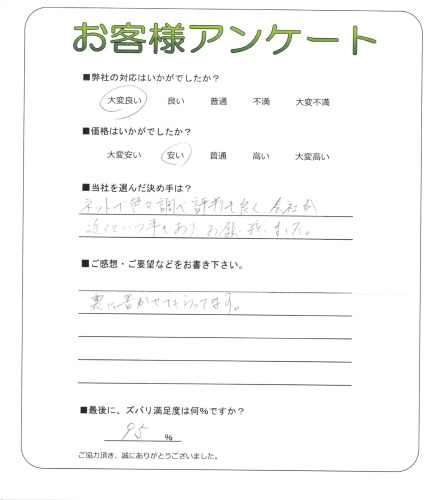 お客様アンケート
■弊社の対応はいかがでしたか？
大変良い 良い 普通 不満 大変不満
■価格はいかがでしたか？
大変安い 安い 普通 高い 大変高い
■当社を選んだ決め手は？
ネットで色々調べ評判も良く、会社が
近くという事もあり、お願い致しました。
■ご感想・ご要望などをお書き下さい。
裏に書かせてもらってます。
■最後に、ズバリ満足度は何%ですか？
95 %
ご協力頂き、誠にありがとうございました。